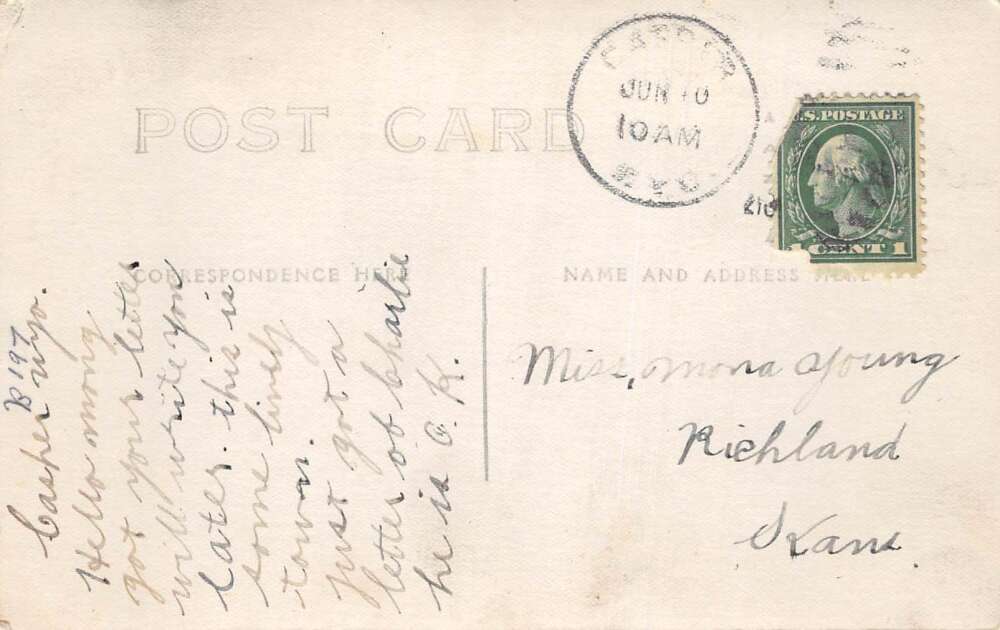 POST CARD
CASPER
JUN 10
10 AM
WYO.
U.S. POSTAGE
1 CENT 1
CORRESPONDENCE HERE
NAME AND ADDRESS HERE
B197
Casper Wyo.
Hello mong
got your letter
will write you
later. this is
some lively
town.
Just got a
letter of Charlie
he is O. K.
Miss, Mona Young
Richland
Kans.